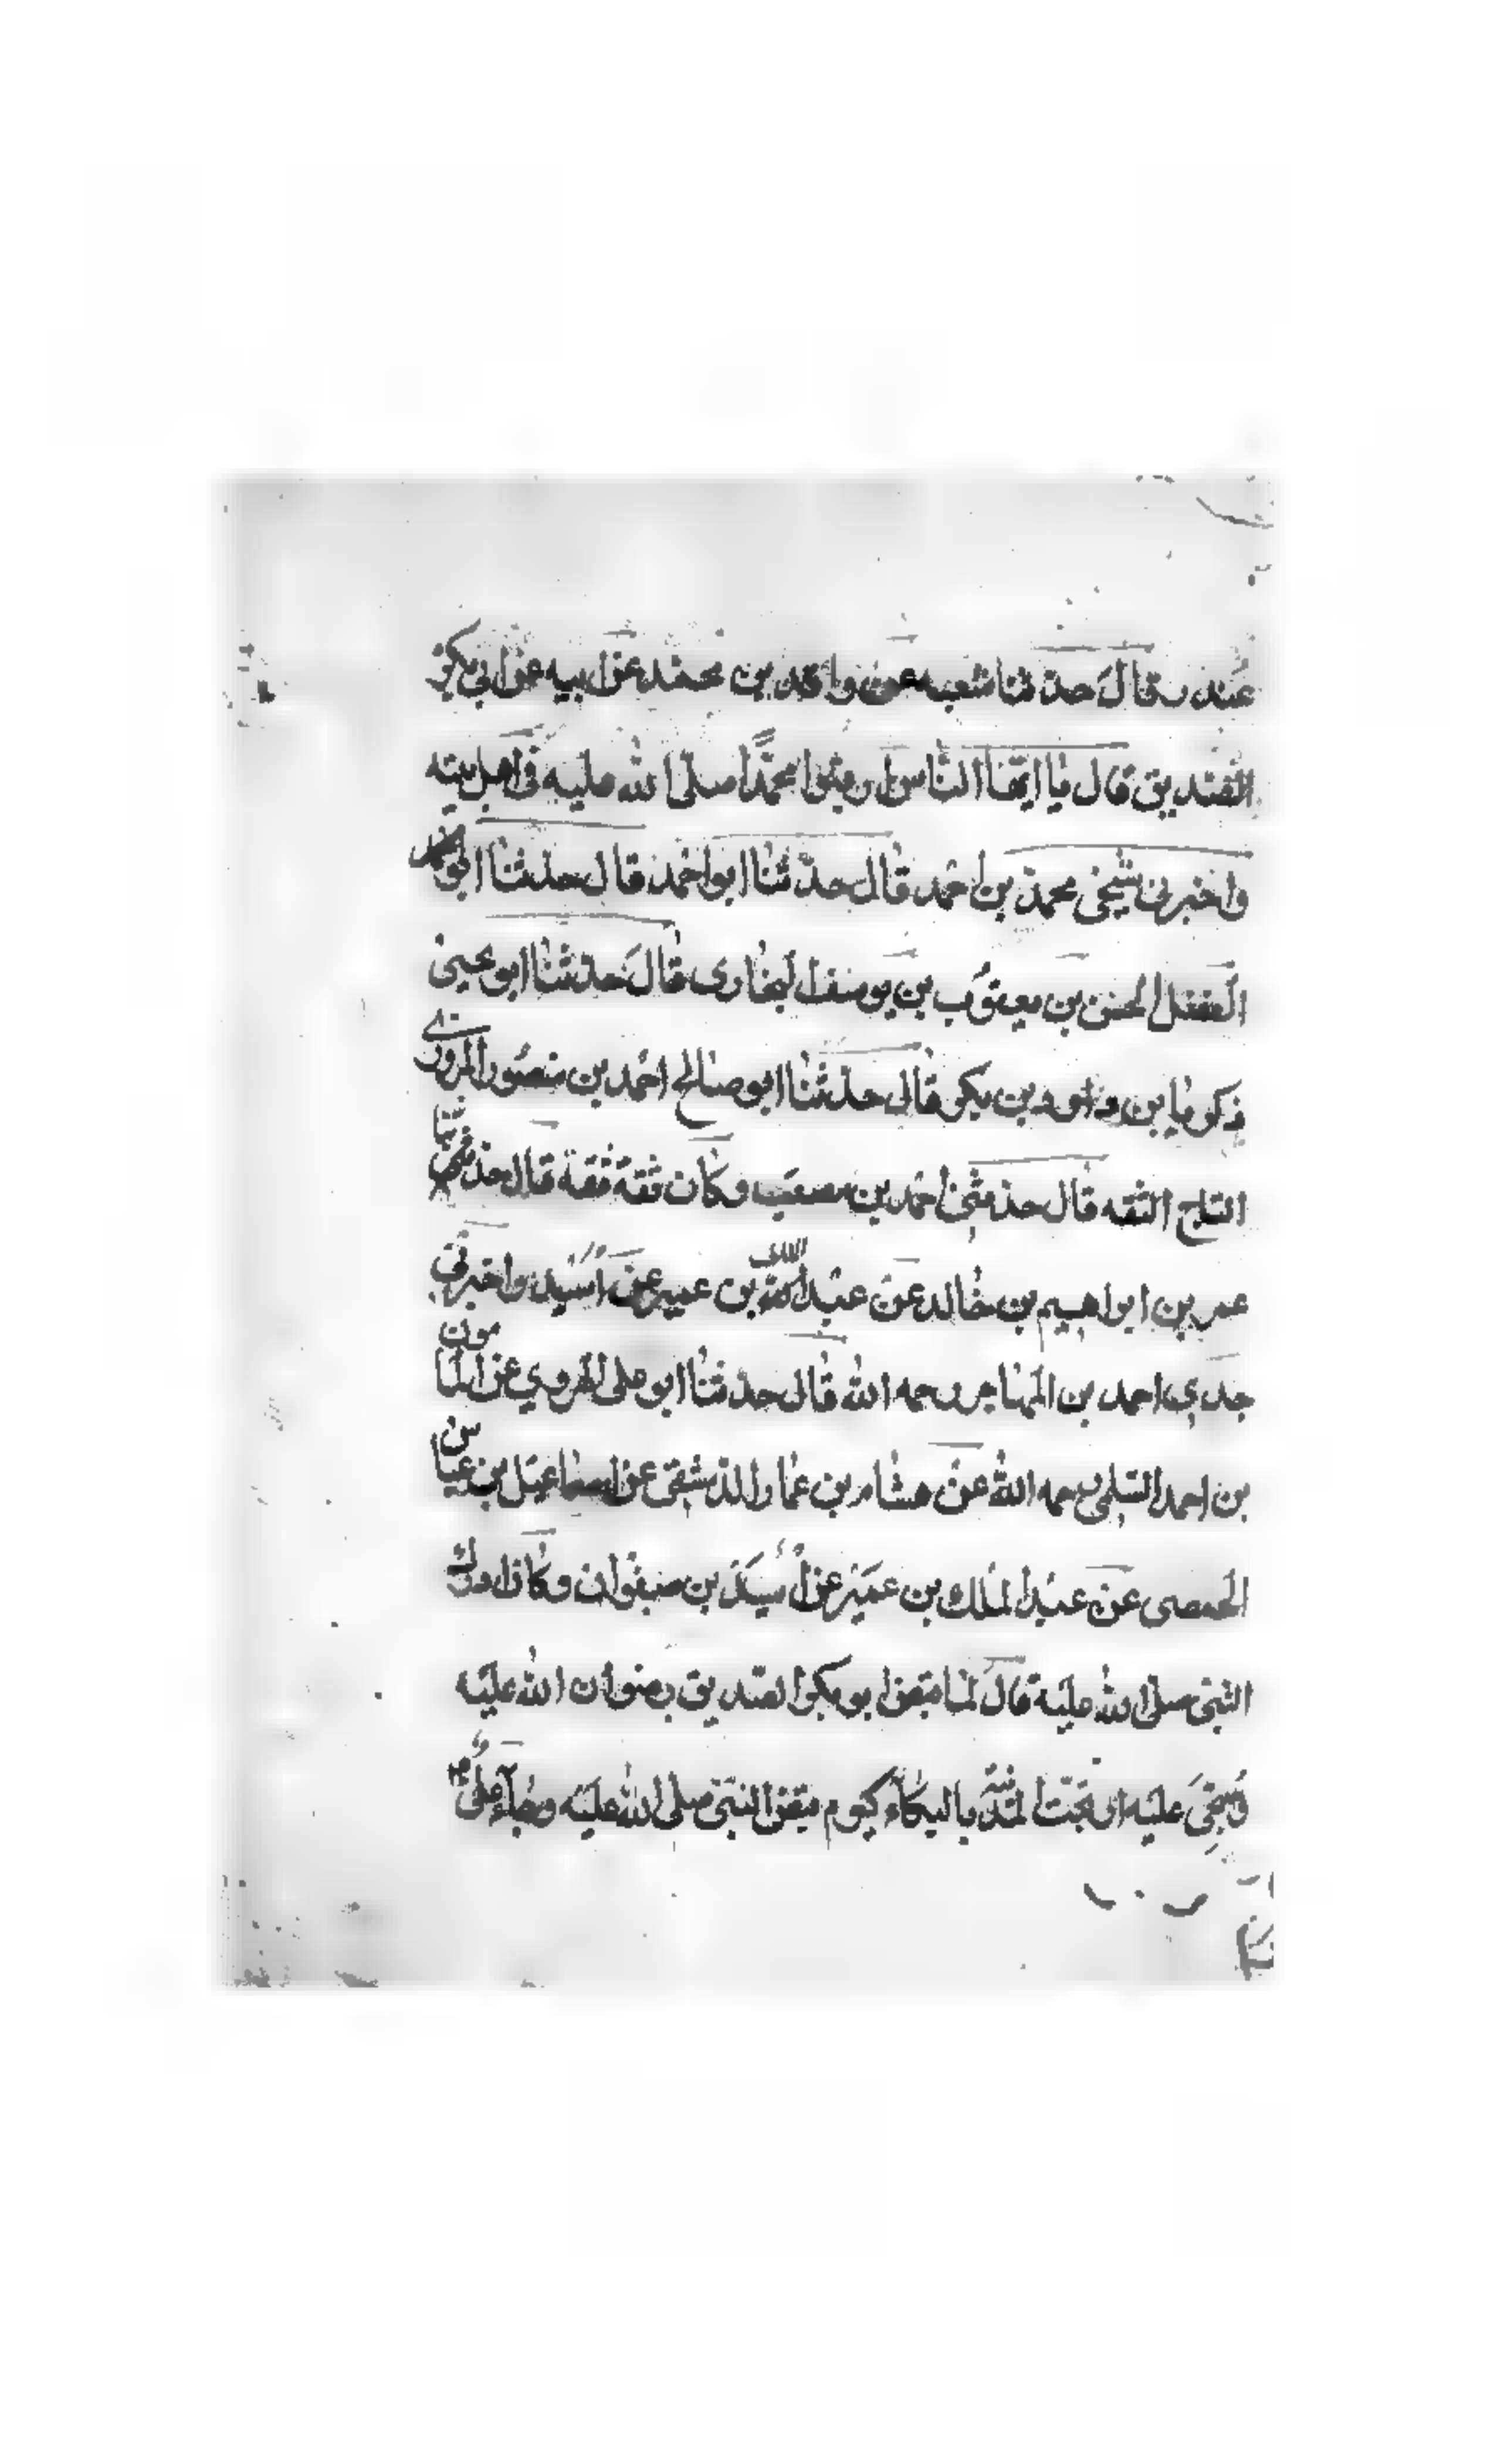 غندر قال حدثنا شعبه عن واقد بن محمد عن ابيه عن ابي بكر
الصديق قال يا ايها الناس ارقبوا محمدًا صلى الله عليه في اهل بيته
واخبرني شيخي محمد بن احمد قال حدثنا ابو احمد قال حدثنا ابو
الفضل الحسن بن يعقوب بن يوسف البخارى قال حدثنا ابو يحيى
زكريا بن داود بن بكر قال حدثنا ابو صالح احمد بن منصور المروزي
الثقه قال حدثني احمد بن مصعب وكان ثقة ثقة قال حدثنا
عمر بن ابراهيم بن خالد عن عبد الملك بن عمير عن اسيد واخبرني
جدي احمد بن المهاجر رحمه الله قال حدثنا ابو على الهروي عن المامون
بن احمد السلمي رحمه الله عن هشام بن عمار الدمشقى عن اسماعيل بن عياش
الحمصى عن عبد الملك بن عمير عن اسيد بن صفوان وكان ادرك
النبى صلى الله عليه قال لما قبض ابو بكر الصديق رضوان الله عليه
وسجي عليه ارتجت المدينة بالبكاء كيوم قبض النبى صلى الله عليه وجاء على